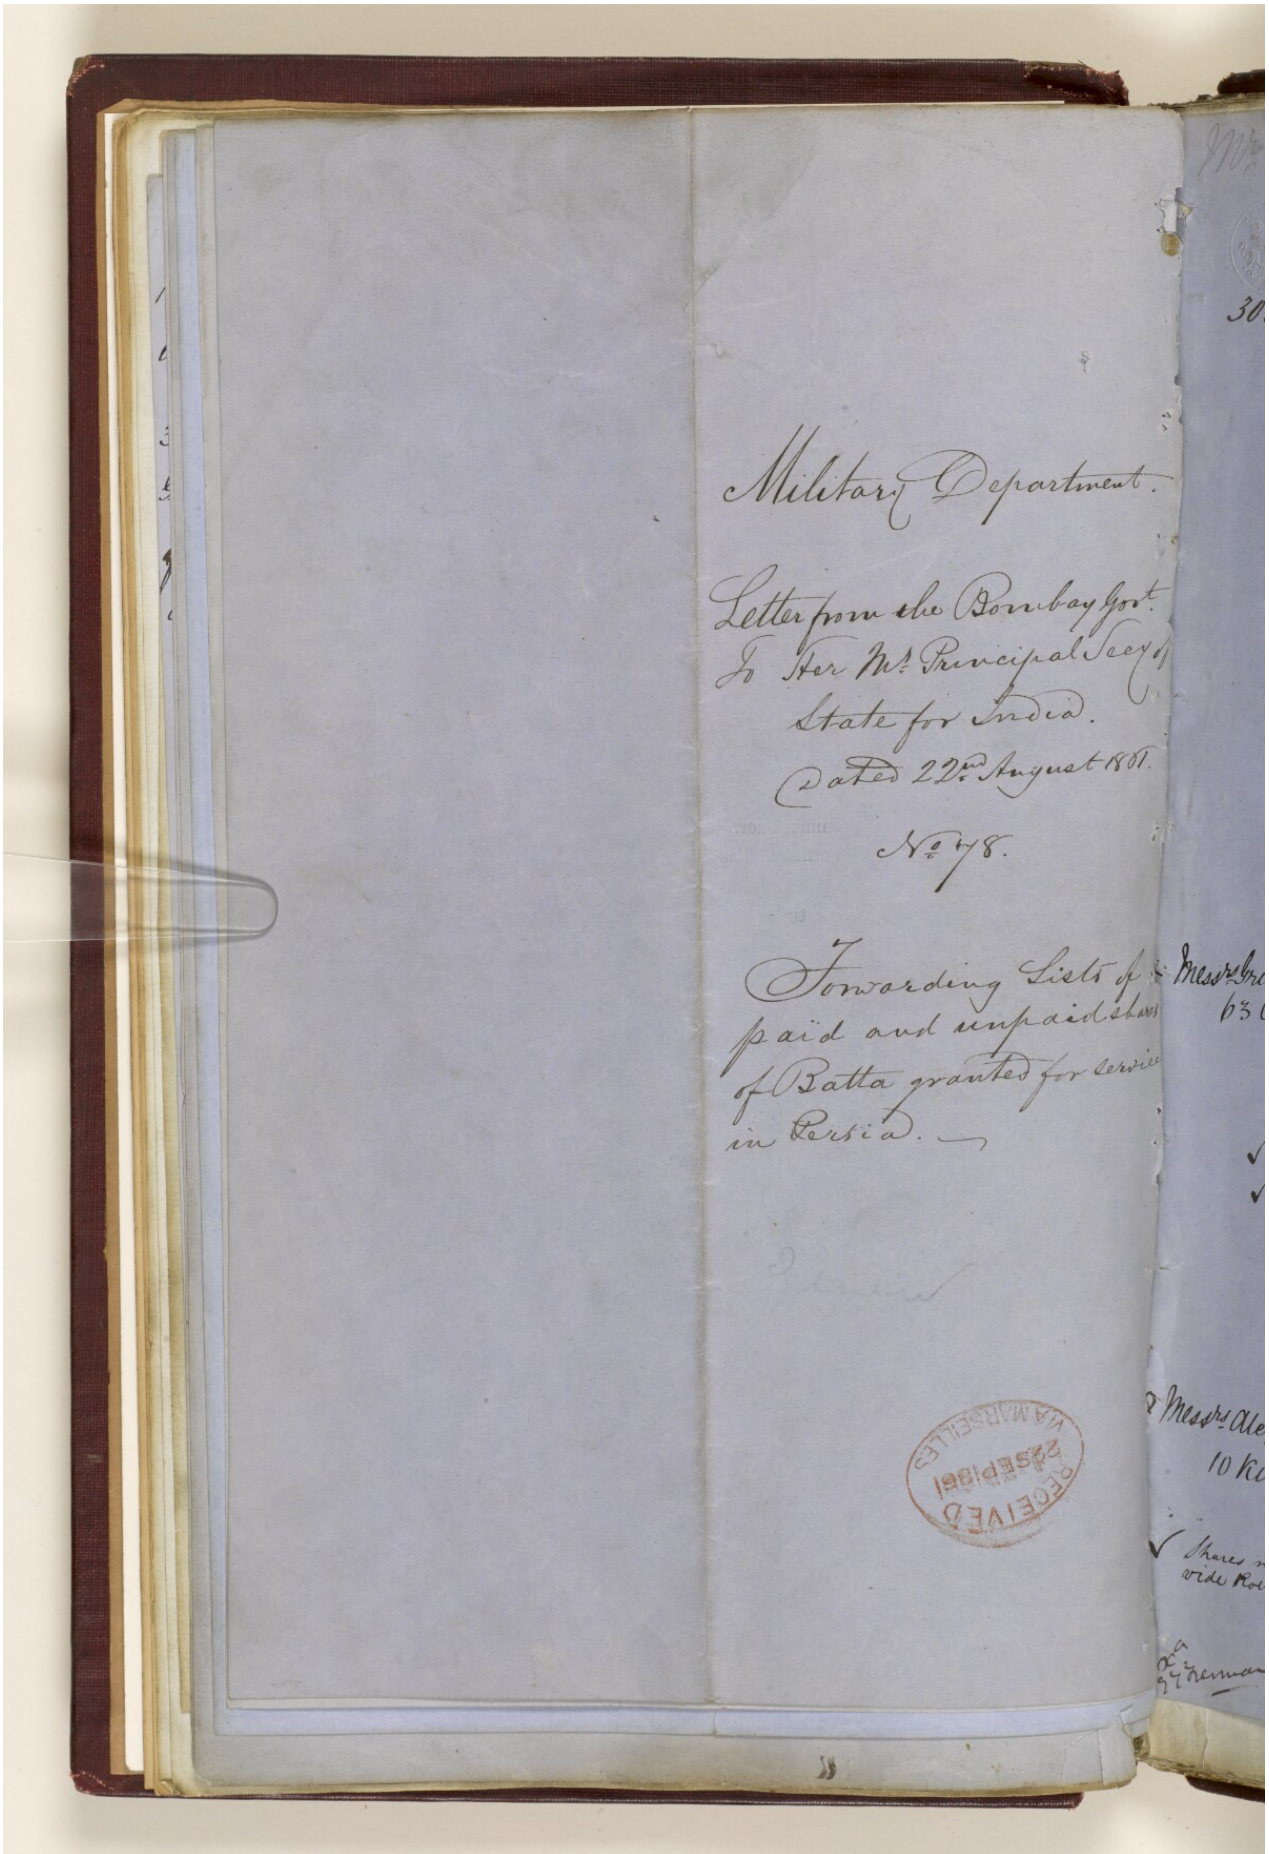 Military Department.
Letter from the Bombay Govt.
To Her M's Principal Secy of
State for India.
Dated 22nd August 1861.
No 78.
Forwarding Lists of
paid and unpaid shares
of Batta granted for service
in Persia.
RECEIVED
22 SEP 1861
VIA MARSEILLES
30
Messrs
63
Messrs Ale
10 
Shares
vide